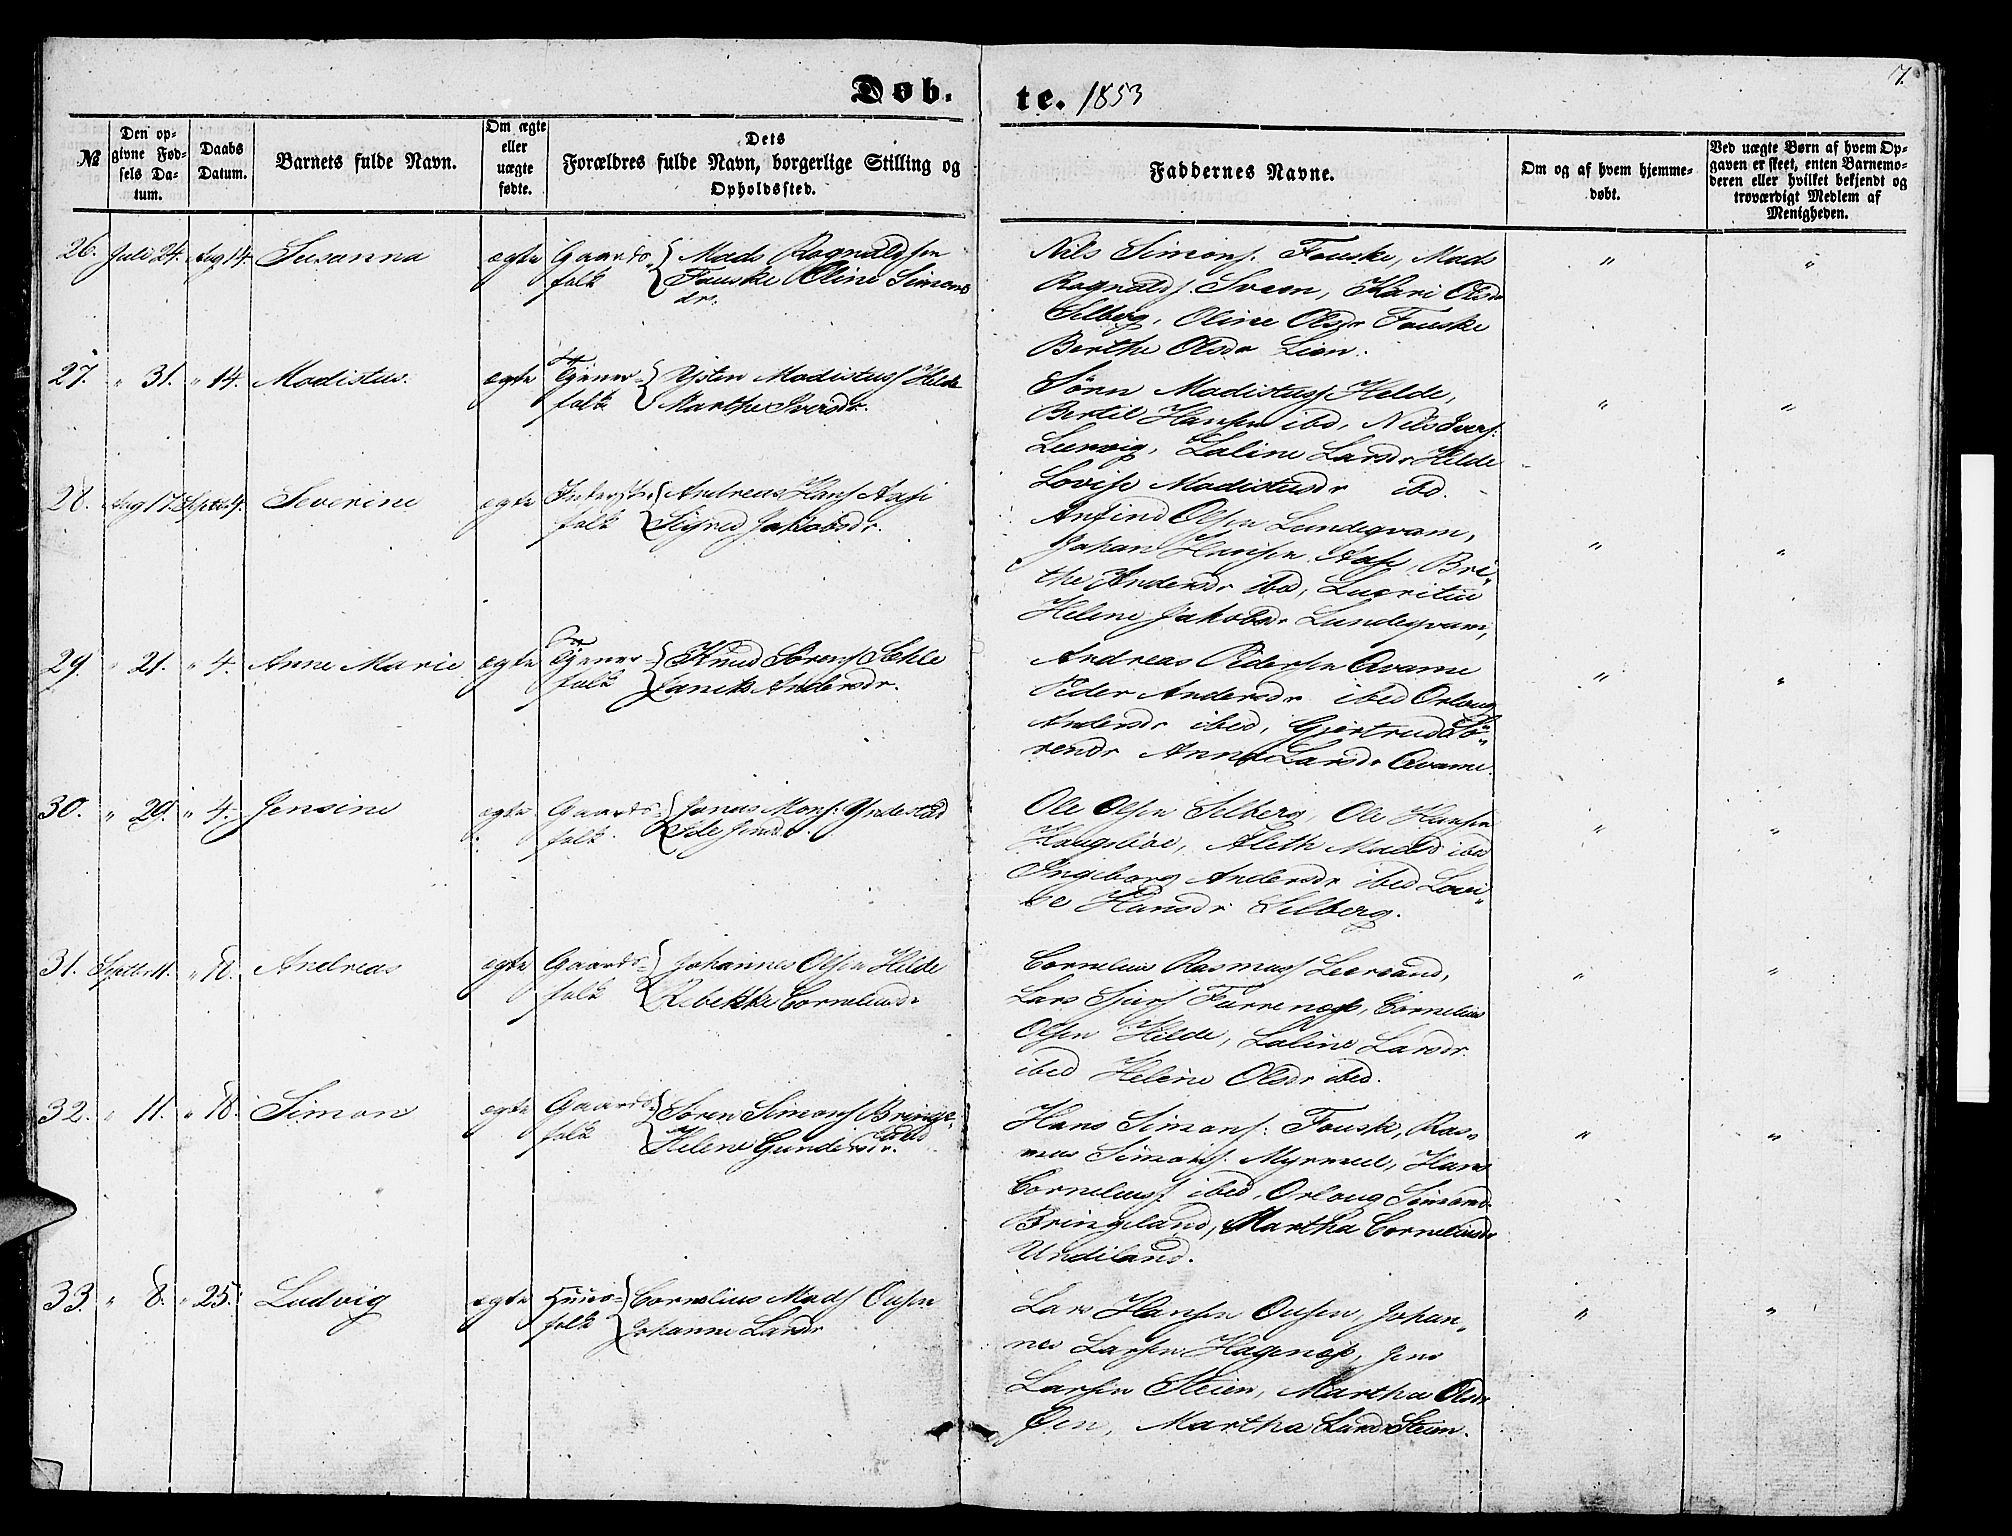 Døb.
te. 1853
7.
№
Den op-
givne Fød-
sels Da-
tum.
Daabs
Datum.
Barnets fulde Navn.
Om ægte
eller
uægte
fødte.
Dets
Forældres fulde Navn, borgerlige Stilling og
Opholdssted.
Faddernes Navne.
Om og af hvem hjemme-
døbt.
Ved uægte Børn af hvem Op-
gaven er skeet, enten Barnemo-
deren eller hvilket bekjendt og
troværdigt Medlem af
Menigheden.
26. Juli 24. Aug 14. Susanna ægte Gaards- Mads Ragnalds.
folk Fauske Oline Simons
dr.
Nils Simons. Fauske, Mads " "
Ragnalds. Svaon, Kari Olsdr
Selberg, Oline Olsdr Fauske
Berthe Olsdr Lien.
27. " 31. " 14. Modistus. ægte Tjener- Østen Modistuss Helde
folk Marthe Iversdr.
Sørn Modistuss Helde, " "
Bertil Hansen ibd, Nils Ivers.
Lervig, Laline Larsdr Hilde
Lovise Modistusdr ibd.
28. Aug 17. Septb 4. Severine ægte Inderst- Andreas Hans Aase
folk Sigrid Jakobsdr.
Anfind Olsen Lundeqvam,
Johan Hansen Aase, Bri- " "
the Andersdr ibd, Lucritie
Helene Jakobsdr Lundeqvam,
29. " 21. " 4. Anne Marie ægte Tjener- Knud Sørens Sehle
folk Janets Andersdr.
Andreas Pedersen Qvame
Peder Andersdr ibed Orloug " "
Andersdr ibed, Gjertrud Sø-
rensdr Anna Larsdr Qvame.
30. " 29. " 4. Jensine ægte Gaards- Jonas Mons. Yndestad
folk. Sile Jensd.
Ole Olsen Selberg, Ole Hansen
Haugsbøe, Aleth Madsd ibd " "
Ingeborg Andersdr ibed Lovi-
se Hansdr Selberg.
31. Septb 11. " 18. Andreas ægte Gaards- Johannes Olsen Hilde
folk Rebekke Corneliusdr
Cornelius Rasmuss Leersand, " "
Lars Sjurs Furrenæs, Cornelius
Olsen Hilde, Laline Larsdr
ibed Helene Olsdr ibed.
32. " 11. " 18. Simon ægte Gaards- Søren Simons Bringe-
folk Helene Gundersdr. land
Hans Simons. Fauske, Ras- " "
mus Simons. Myrmel, Hans
Corneliuss ibed, Orloug Simonsd.
Bringeland, Martha Corneliusdr
Undiland.
33. " 8. " 25. Ludvig ægte Huus- Cornelius Mads Ousen
folk Johanne Larsdr
Lars Hansen Ousen, Johan- " "
nes Larsen Hagenæs, Jens
Larsen Steien, Martha Olsdr
Øen, Martha Larsdr Steien.